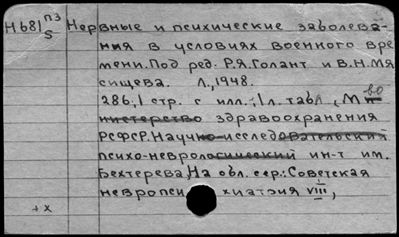 Н681 ПЗ/5 Нервные и психические заболева-
ния в условиях военного вре
мени. Под ред. Р.Я.Голант и В.Н.Мя
сищева. Л., 1948.
286,1 стр. с илл.; 1 л. табл., М-во
нистерство здравоохранения
РСФСР. Научно-исследовательский
психо-неврологический ин-т им.
Бехтерева, На обл. сер.: Советская
невропси хиатрия VIII,
+x